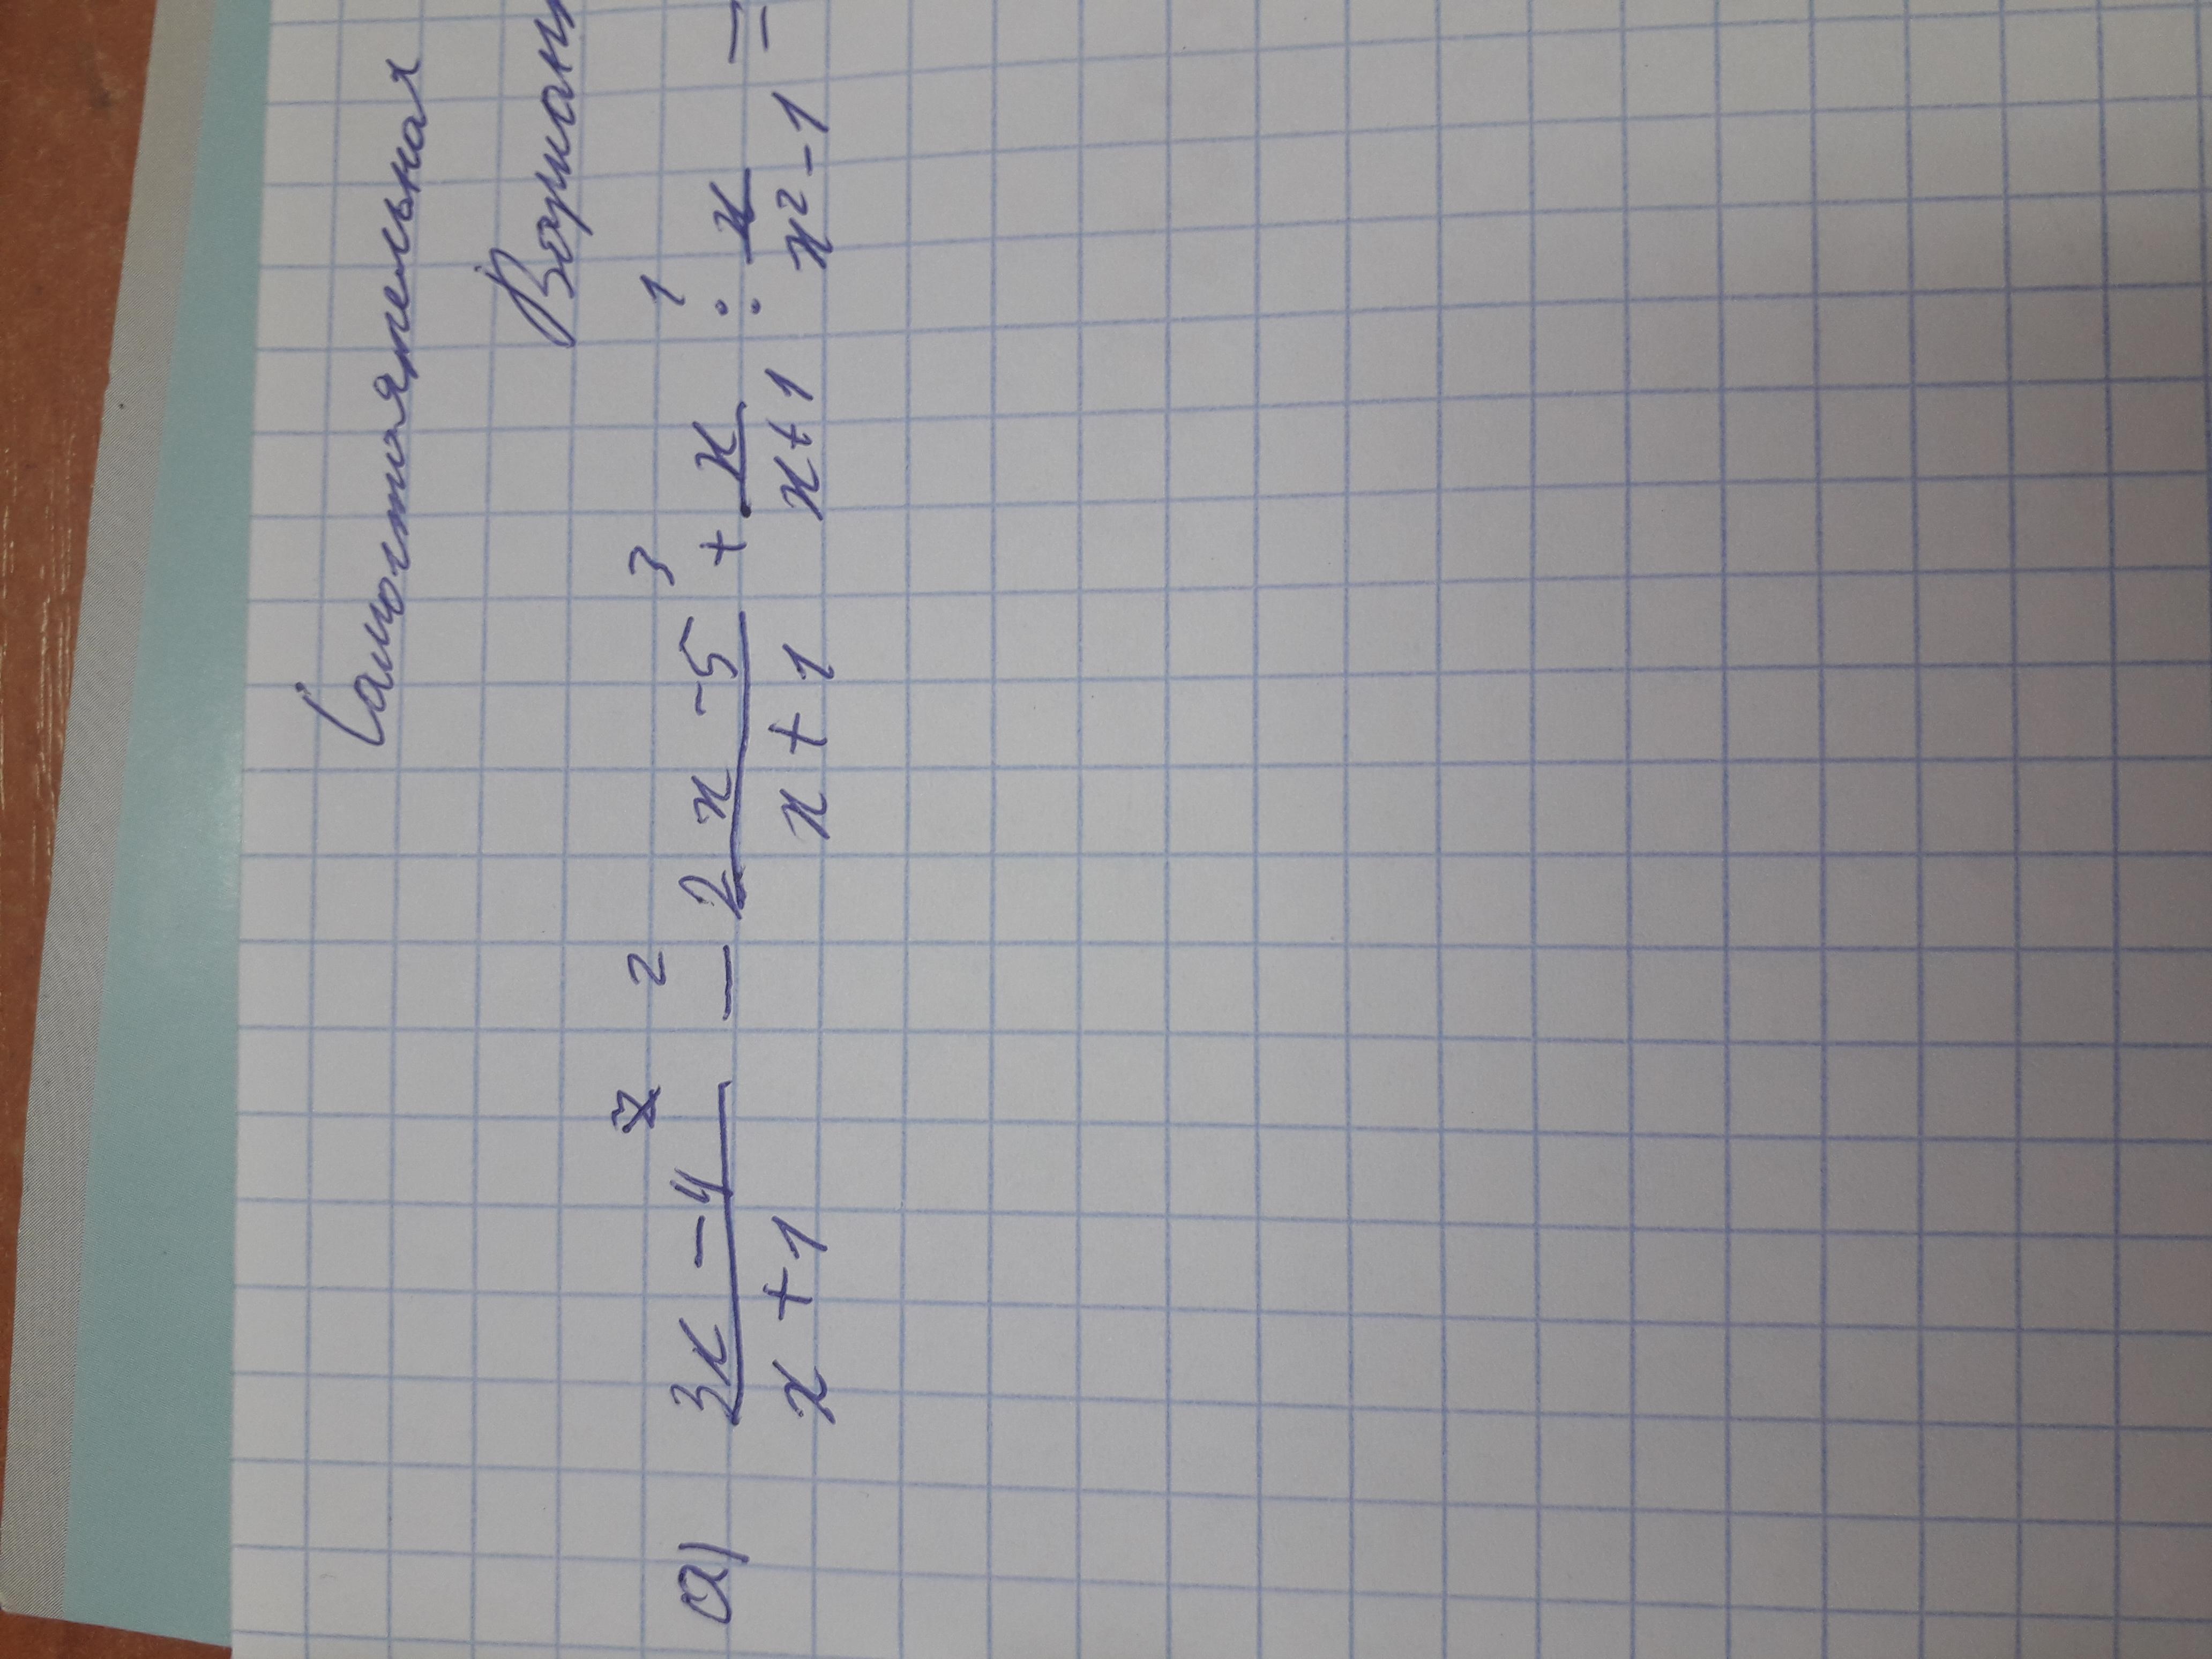 Самостоятельная
Вариан
2 3 1
а) 3x - 4 / x + 1 - 2x - 5 / x + 1 + x / x + 1 : x / x² - 1 =